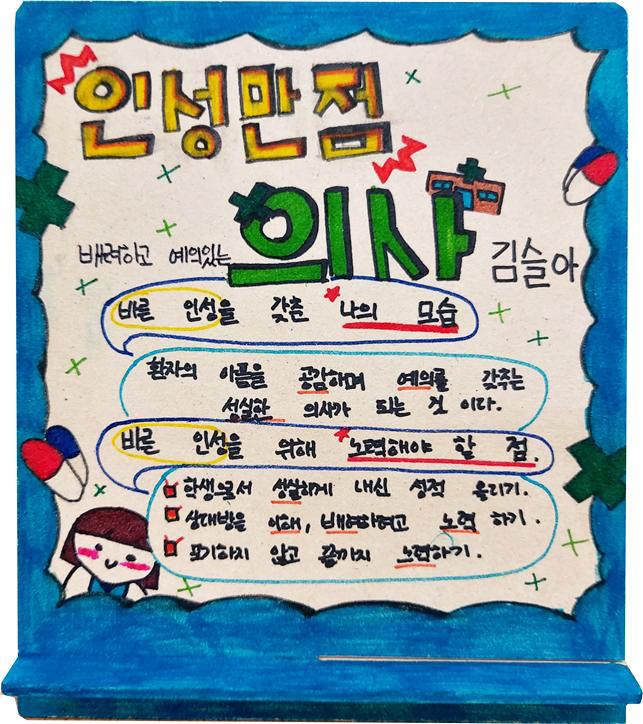 인성만점
배려하고 예의있는 의사 김슬아
바른 인성을 갖춘 나의 모습
환자의 아픔을 공감하며 예의를 갖추는
성실한 의사가 되는 것 이다.
바른 인성을 위해 노력해야 할 점.
학생으로서 성실하게 내신 성적 올리기.
상대방을 이해, 배려하려고 노력 하기.
포기하지 않고 끝까지 노력하기.